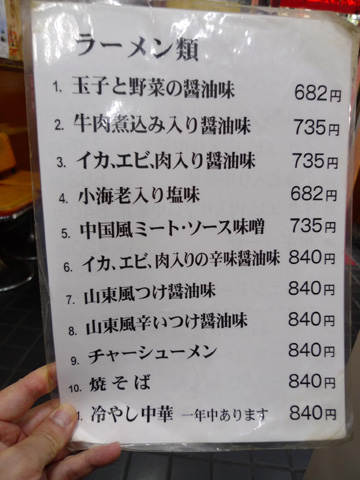 ラーメン類
1. 玉子と野菜の醤油味 682円
2. 牛肉煮込み入り醤油味 735円
3. イカ、エビ、肉入り醤油味 735円
4. 小海老入り塩味 682円
5. 中国風ミート・ソース味噌 735円
6. イカ、エビ、肉入りの辛味醤油味 840円
7. 山東風つけ醤油味 840円
8. 山東風辛いつけ醤油味 840円
9. チャーシューメン 840円
10. 焼そば 840円
1. 冷やし中華 一年中あります 840円